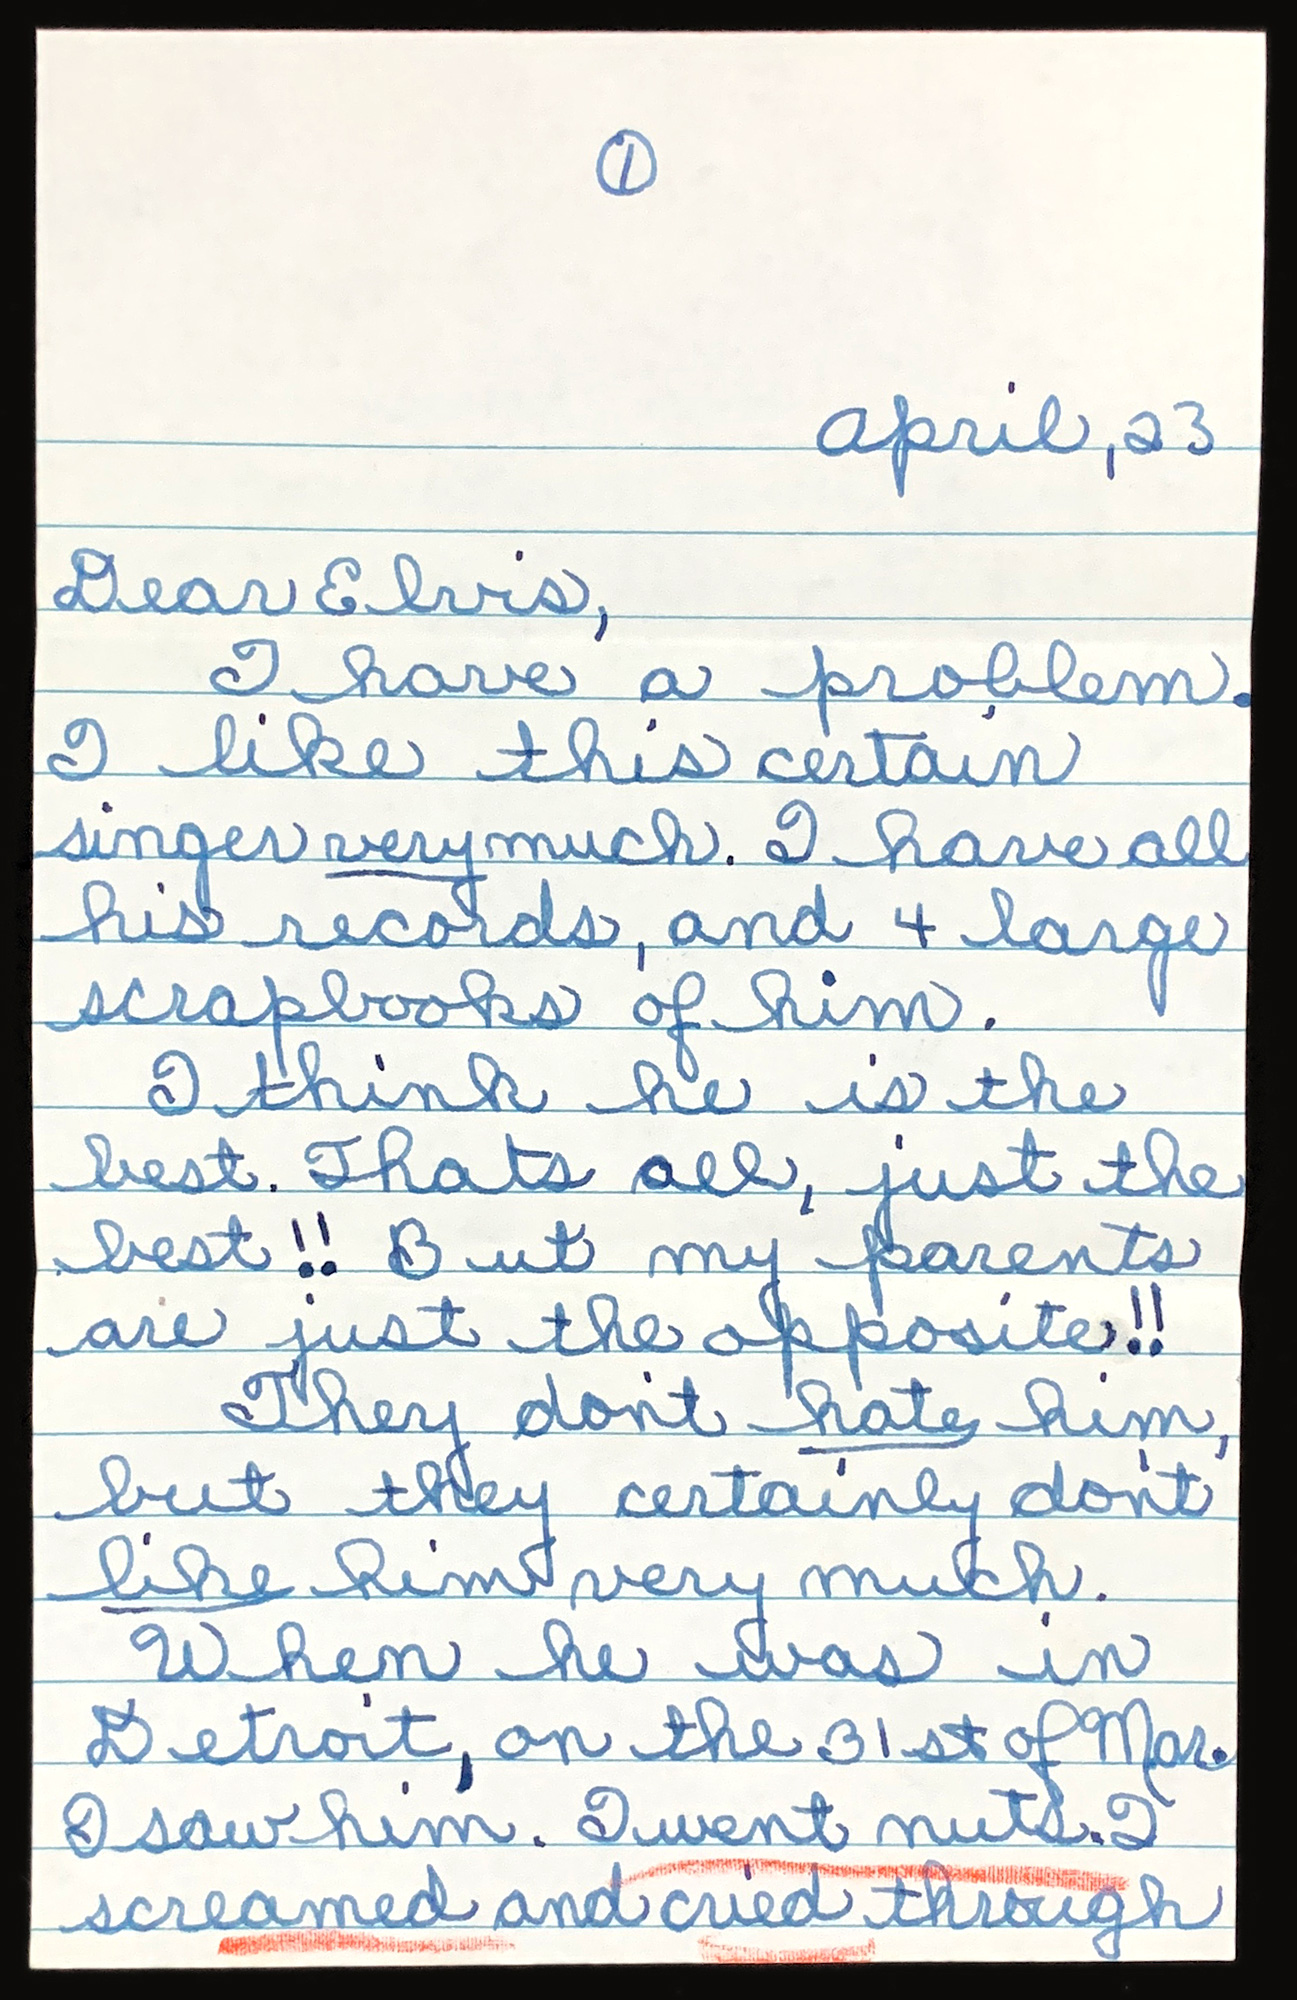 1
April, 23
Dear Elvis,
I have a problem.
I like this certain
singer very much. I have all
his records, and 4 large
scrapbooks of him.
I think he is the
best. Thats all, just the
best!! But my parents
are just the opposite!!
They don't hate him,
but they certainly don't
like him very much.
When he was in
Detroit, on the 31st of Mar.
I saw him. I went nuts. I
screamed and cried through